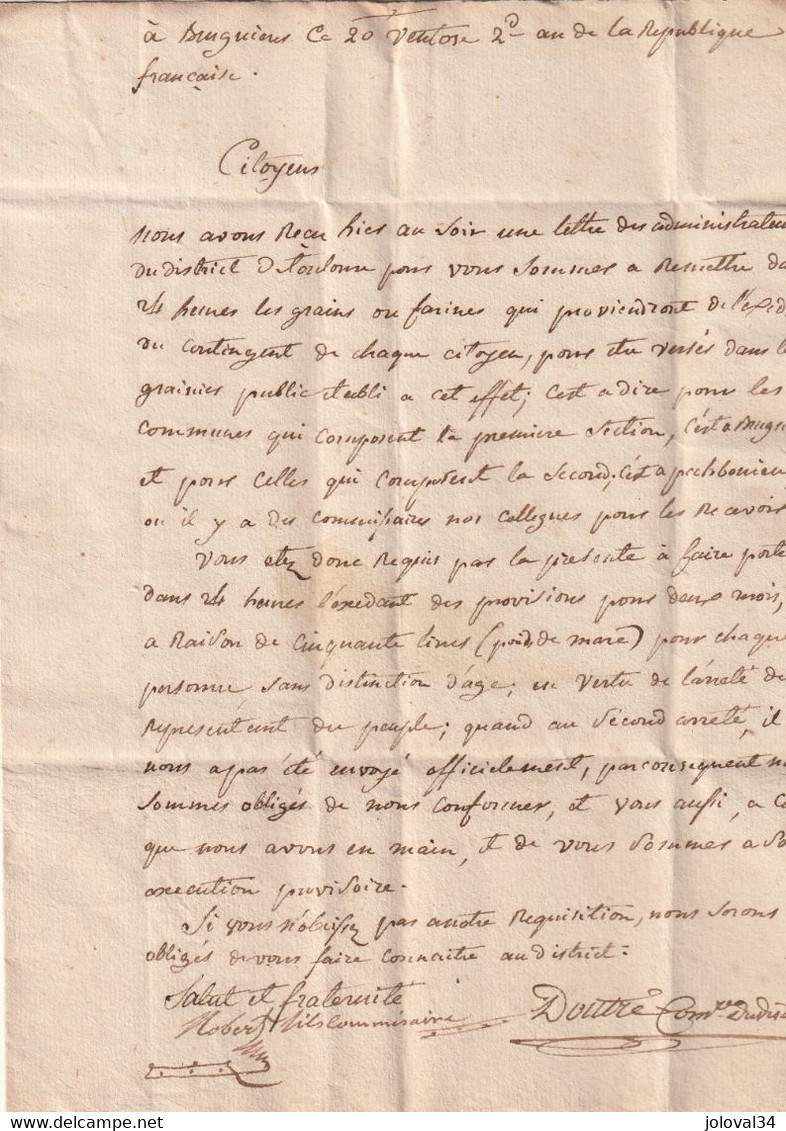 à Bruguieres Ce 20 Ventose 2d an de la Republique
française.
Citoyens
nous avons Reçu hier au soir une lettre des administrateu
du district d toulouse pour vous sommer a Remettre da
24 heures les grains ou farines qui proviendront de l'exed
du Contingent de chaque citoyen, pour etre versés dans le
grainier public etabli a cet effet; C'est a dire pour les
Communes qui Composent la premiere section, c'est a Brugu
et pour Celles qui Composent la second; c'est a pechbonieu
ou il y a des commissaires nos collegues pour les Recevoir
Vous etez donc Requis par la presente à faire porte
dans 24 heures l'exedant des provisions pour deux mois,
a Raison de Cinquante livres (poids de marc) pour chaque
personne, sans distinction d'age; en Vertu de l'arreté de
Representant du peuple; quand au second arreté, il
nous a pas été envoyé officielement, par consequent n
sommes obligés de nous conformer, et vous aussi, a C
que nous avons en main, et de vous sommer a so
execution provisoire.
Si vous n'obeissez pas a notre Requisition, nous serons
obligés de vous faire connaitre au district.
Salut et fraternité
Robert fils Commissaire Doutre Comre du dis
joloval34